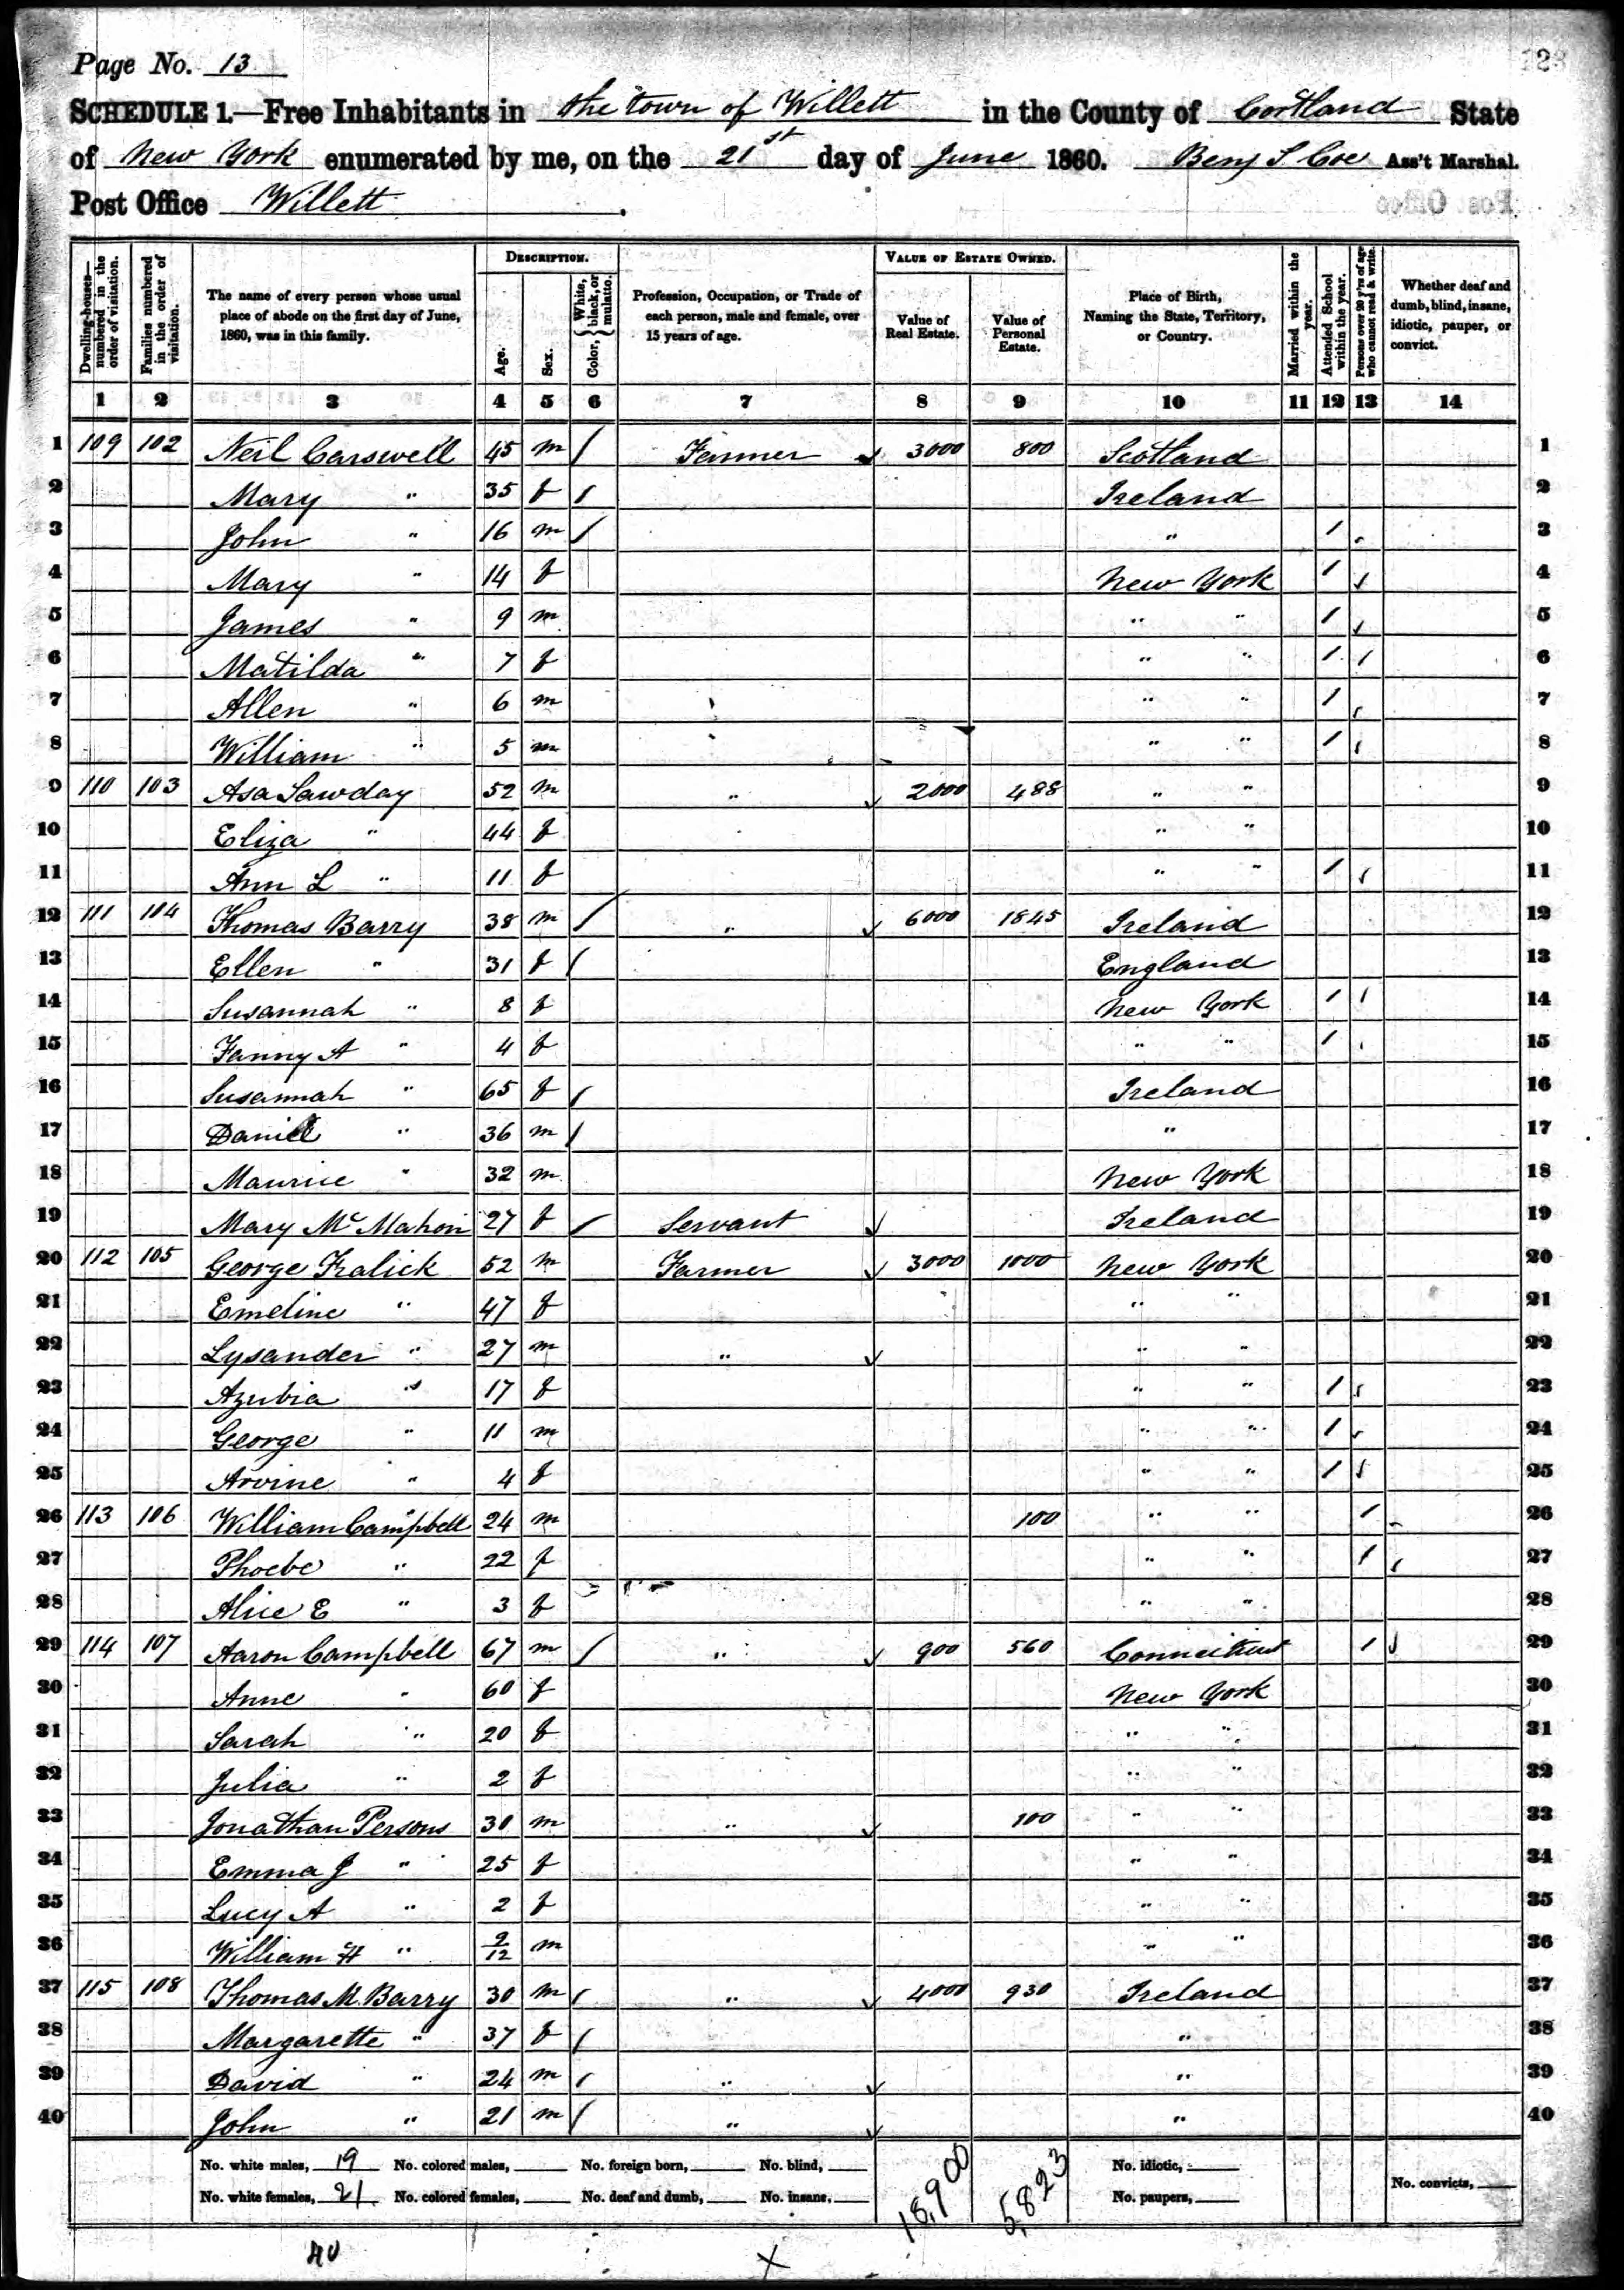 Page No. 13
SCHEDULE 1.—Free Inhabitants in the town of Willett in the County of Cortland State
of New York enumerated by me, on the 21st day of June 1860. Benj S Coe Ass't Marshal.
Post Office Willett.
Dwelling-houses—numbered in the order of visitation. Families numbered in the order of visitation. The name of every person whose usual place of abode on the first day of June, 1860, was in this family. DESCRIPTION. Age. Sex. Color, { White, black, or mulatto. Profession, Occupation, or Trade of each person, male and female, over 15 years of age. VALUE OF ESTATE OWNED. Value of Real Estate. Value of Personal Estate. Place of Birth, Naming the State, Territory, or Country. Married within the year. Attended School within the year. Persons over 20 y'rs of age who cannot read & write. Whether deaf and dumb, blind, insane, idiotic, pauper, or convict.
1 2 3 4 5 6 7 8 9 10 11 12 13 14
1 109 102 Neil Carswell 45 m / Farmer 3000 800 Scotland 1
2 Mary " 35 f / Ireland 2
3 John " 16 m / " / 3
4 Mary " 14 f New York / 4
5 James " 9 m " " / 5
6 Matilda " 7 f " " / / 6
7 Allen " 6 m " " / 7
8 William " 5 m " " / 8
9 110 103 Asa Sawday 52 m " 2000 488 " " 9
10 Eliza " 44 f " " 10
11 Ann L " 11 f " " / 11
12 111 104 Thomas Barry 38 m / " 6000 1845 Ireland 12
13 Ellen " 31 f / England 13
14 Susannah " 8 f New York / / 14
15 Fanny A " 4 f " " / 15
16 Susannah " 65 f / Ireland 16
17 Daniel " 36 m / " 17
18 Maurice " 32 m New York 18
19 Mary McMahon 27 f / Servant Ireland 19
20 112 105 George Fralick 52 m Farmer 3000 1000 New York 20
21 Emeline " 47 f " " 21
22 Lysander " 27 m " " " 22
23 Azubia " 17 f " " / 23
24 George " 11 m " " / 24
25 Arvine " 4 f " " / 25
26 113 106 William Campbell 24 m 100 " " / 26
27 Phoebe " 22 f " " / 27
28 Alice E " 3 f " " 28
29 114 107 Aaron Campbell 67 m / " 900 560 Connecticut / 29
30 Anne " 60 f New York 30
31 Sarah " 20 f " " 31
32 Julia " 2 f " " 32
33 Jonathan Persons 30 m " 100 " " 33
34 Emma J " 25 f " " 34
35 Lucy A " 2 f " " 35
36 William H " 9/12 m " " 36
37 115 108 Thomas M Barry 30 m / " 4000 930 Ireland 37
38 Margarette " 37 f / " 38
39 David " 24 m / " " 39
40 John " 21 m / " " 40
No. white males, 19 No. colored males, No. foreign born, No. blind, 18,900 5,823 No. idiotic,
No. white females, 21 No. colored females, No. deaf and dumb, No. insane, No. paupers, No. convicts,
40 X